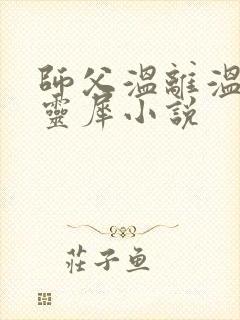 師父溫離溫
靈犀小說
莊子魚